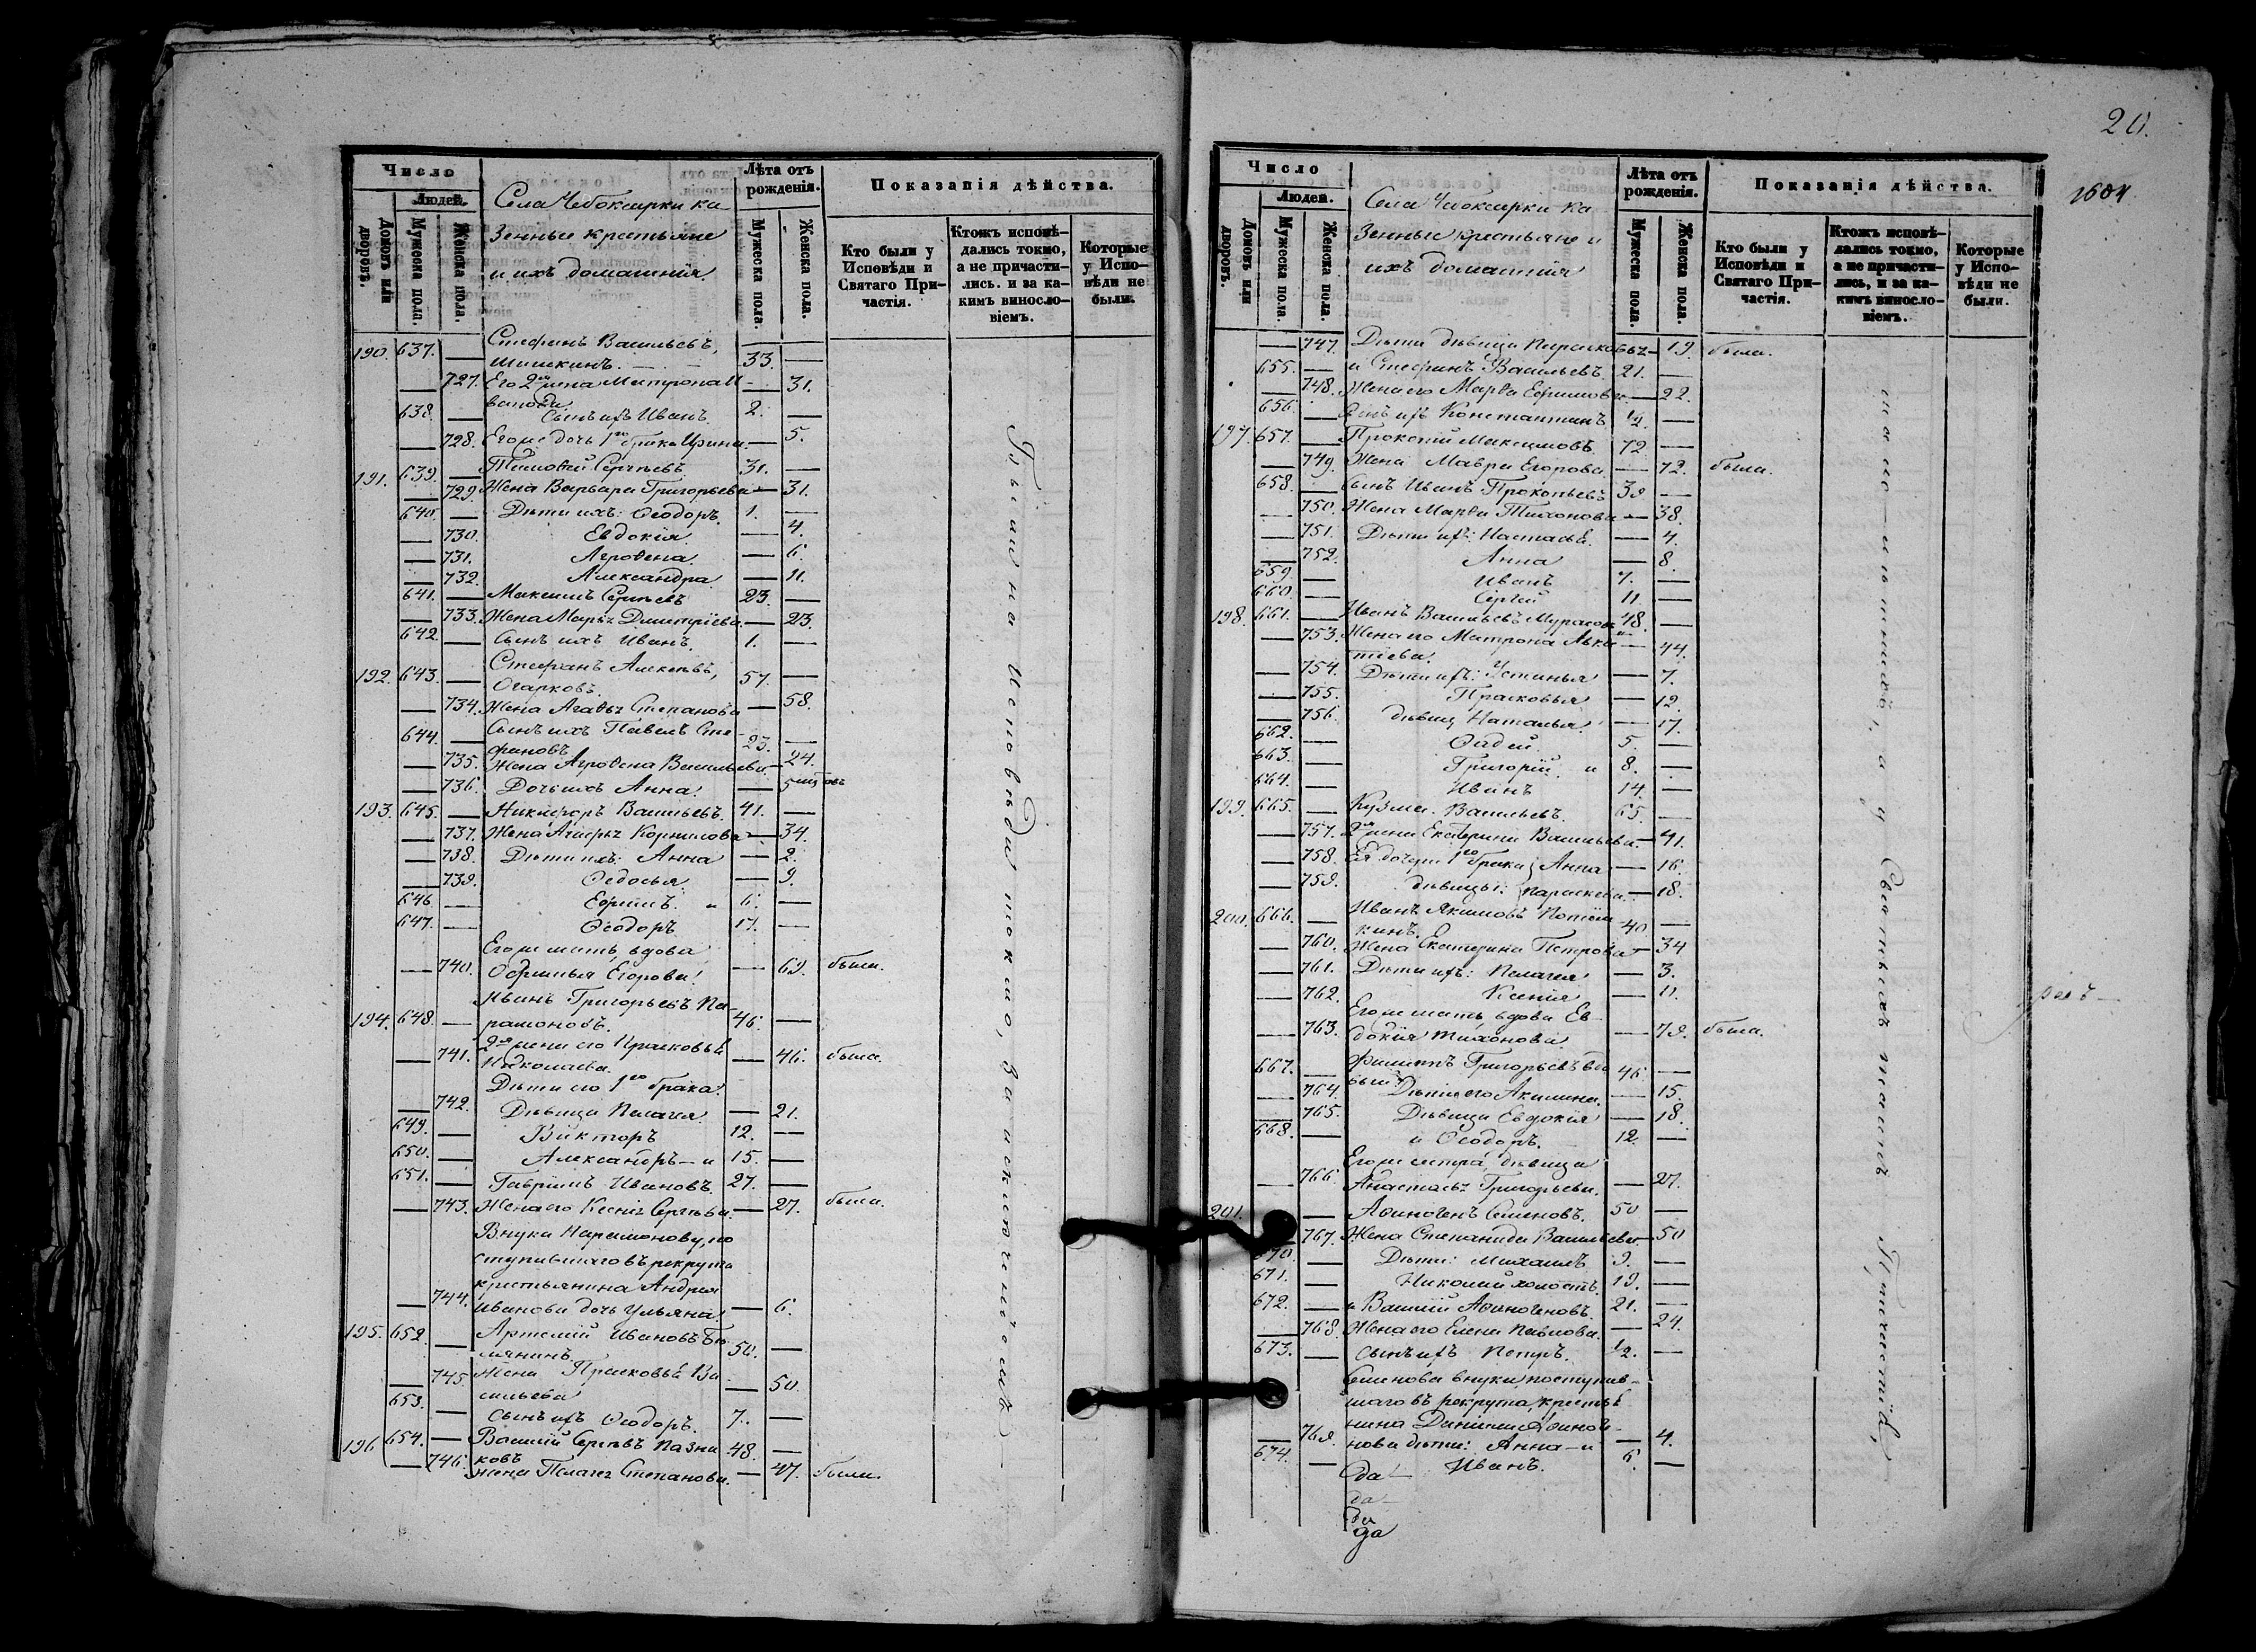 Число
Людей.
Домовъ или дворовъ.
Мужеска пола.
Женска пола.
Села Чебоксарки ка-
зенные крестьяне
и ихъ домашнія
Лѣта отъ рожденія.
Мужеска пола.
Женска пола.
Показанія дѣйства.
Кто были у Исповѣди и Святаго Причастія.
Ктожъ исповѣ-
дались токмо,
а не причасти-
лись. и за ка-
кимъ винословіемъ.
Которые
у Испо-
вѣди не
были.
190. 637. — Стефанъ Васильевъ,
Шишкинъ. — 33. —
— 727. Его 2я жена Матрона И-
ванова — 31.
638. — Сынъ ихъ Иванъ. 2. —
— 728. Его же дочь 1го брака Ирина — 5.
191. 639. — Тимофей Сергѣевъ 31. —
— 729. Жена Варвара Григорьева — 31.
640. — Дѣти ихъ: Ѳеодоръ. 1. —
— 730. Евдокія. — 4.
— 731. Агрофена. — 6.
— 732. Александра — 11.
641. — Максимъ Сергѣевъ 23. —
— 733. Жена Марѳа Дмитріева. — 23.
642. — Сынъ ихъ Иванъ. 1. —
192. 643. — Стефанъ Алексѣевъ,
Огарковъ. 57. —
— 734. Жена Агафья Степанова — 58.
644. — Сынъ ихъ Павелъ Сте-
фановъ 23. —
— 735. Жена Агрофена Васильева — 24.
— 736. Дочь ихъ Анна. — 5 мцовъ
193. 645. — Никифоръ Васильевъ. 41. —
— 737. Жена Агафья Корнилова — 34.
— 738. Дѣти ихъ: Анна — 2.
— 739. Ѳедосья. — 9.
646 — Ефимъ. и 6. —
647. — Ѳеодоръ 17. —
Его же мать, вдова
— 740. Офимья Егорова. — 69. была.
194. 648. — Иванъ Григорьевъ Па-
рамоновъ. 46. —
— 741. 2я жена его Прасковья
Николаева. — 46. была.
Дѣти его 1го брака:
— 742. Дѣвица Пелагея. — 21.
649. — Викторъ 12. —
650. — Александръ — и 15. —
651. — Гаврілъ Ивановъ. 27. —
— 743. Жена его Ксенія Сергѣева. — 27. была.
Внука Парамонову, по
ступившаго въ рекрута
крестьянина Андрея
— 744. Иванова дочь Ульяна. — 6.
195. 652. — Артемій Ивановъ
50. —
— 745. Жена Прасковья Ва
сильева — 50.
653. — Сынъ ихъ Ѳеодоръ. 7. —
196 654. — Василій Сергѣевъ Пазни
ковъ 48. —
— 746. Жена Пелагея Степанова. — 47. были.
Были на Исповѣди токмо, за исключеніемъ
20.
1604
Число
Людей.
Домовъ или дворовъ.
Мужеска пола.
Женска пола.
Села Чебоксарки ка
зенные крестьяне и
ихъ домашнія
Лѣта отъ рожденія.
Мужеска пола.
Женска пола.
Показанія дѣйства.
Кто были у Исповѣди и Святаго Причастія.
Ктожъ исповѣ-
дались токмо,
а не причасти-
лись, и за ка-
кимъ винословіемъ.
Которые
у Испо-
вѣди не
были.
— 747. Дѣти дѣвица Парасковья — 19. была.
655. — и Стефанъ Васильевъ. 21. —
— 748. Жена его Марфа Ефимова — 22.
656. — Сынъ ихъ Константинъ 1/2. —
197. 657. — Прокопій Максимовъ 72 —
— 749. Жена Мавра Егорова. — 72. была.
658. — Сынъ Иванъ Прокопьевъ 39 —
— 750. Жена Марфа Тихонова — 38.
— 751. Дѣти ихъ: Настасья. — 4.
— 752. Анна — 8.
659. — Иванъ 7. —
660. — Сергѣй 11. —
198. 661. — Иванъ Васильевъ 48. —
— 753. Жена его Матрона
— 44.
— 754. Дѣти ихъ: Устинья — 7.
— 755. Прасковья — 12.
— 756 дѣвица Наталья. — 17.
662. — Ѳадей. 5. —
663. — Григорій. и 8. —
664. — Иванъ 14. —
199. 665. — Кузма Васильевъ. 65. —
— 757. 2я жена Екатерина Васильева — 41.
— 758. Ея дочери 1го брака: Анна — 16.
— 759. дѣвицы: Параскева — 18.
200. 666. — Иванъ Якимовъ Потем
кинъ. 40 —
— 760. Жена Екатерина Петрова — 34
— 761. Дѣти ихъ: Пелагея — 3.
— 762. Ксенія — 11.
Его же мать, вдова Ев-
— 763. докія Тихонова. — 79. была.
667. — Филиппъ Григорьевъ
46 —
— 764. Дѣти его Акилина. — 15.
— 765. Дѣвица Евдокія — 18.
668. — и Ѳеодоръ. 12. —
Его же сестра, дѣвица
— 766. Анастасья Григорьева. — 27.
201. — Аѳиногенъ Семеновъ. 50 —
767. Жена Степанида Васильева — 50
670. — Дѣти: Михаилъ 9. —
671. — Николай холостъ. 19. —
672. — и Василій Аѳиногеновъ. 21. —
— 768. Жена его Елена Павлова. — 24.
673. — Сынъ ихъ Петръ. 1/2. —
Семенова внуки, поступив-
шаго въ рекрута, крестья
нина Даніила Аѳиноге-
— 769. нова дѣти: Анна — и — 4.
674. — Иванъ. 6. —
да
да
да
да
а у Святыхъ таинъ Причастія,